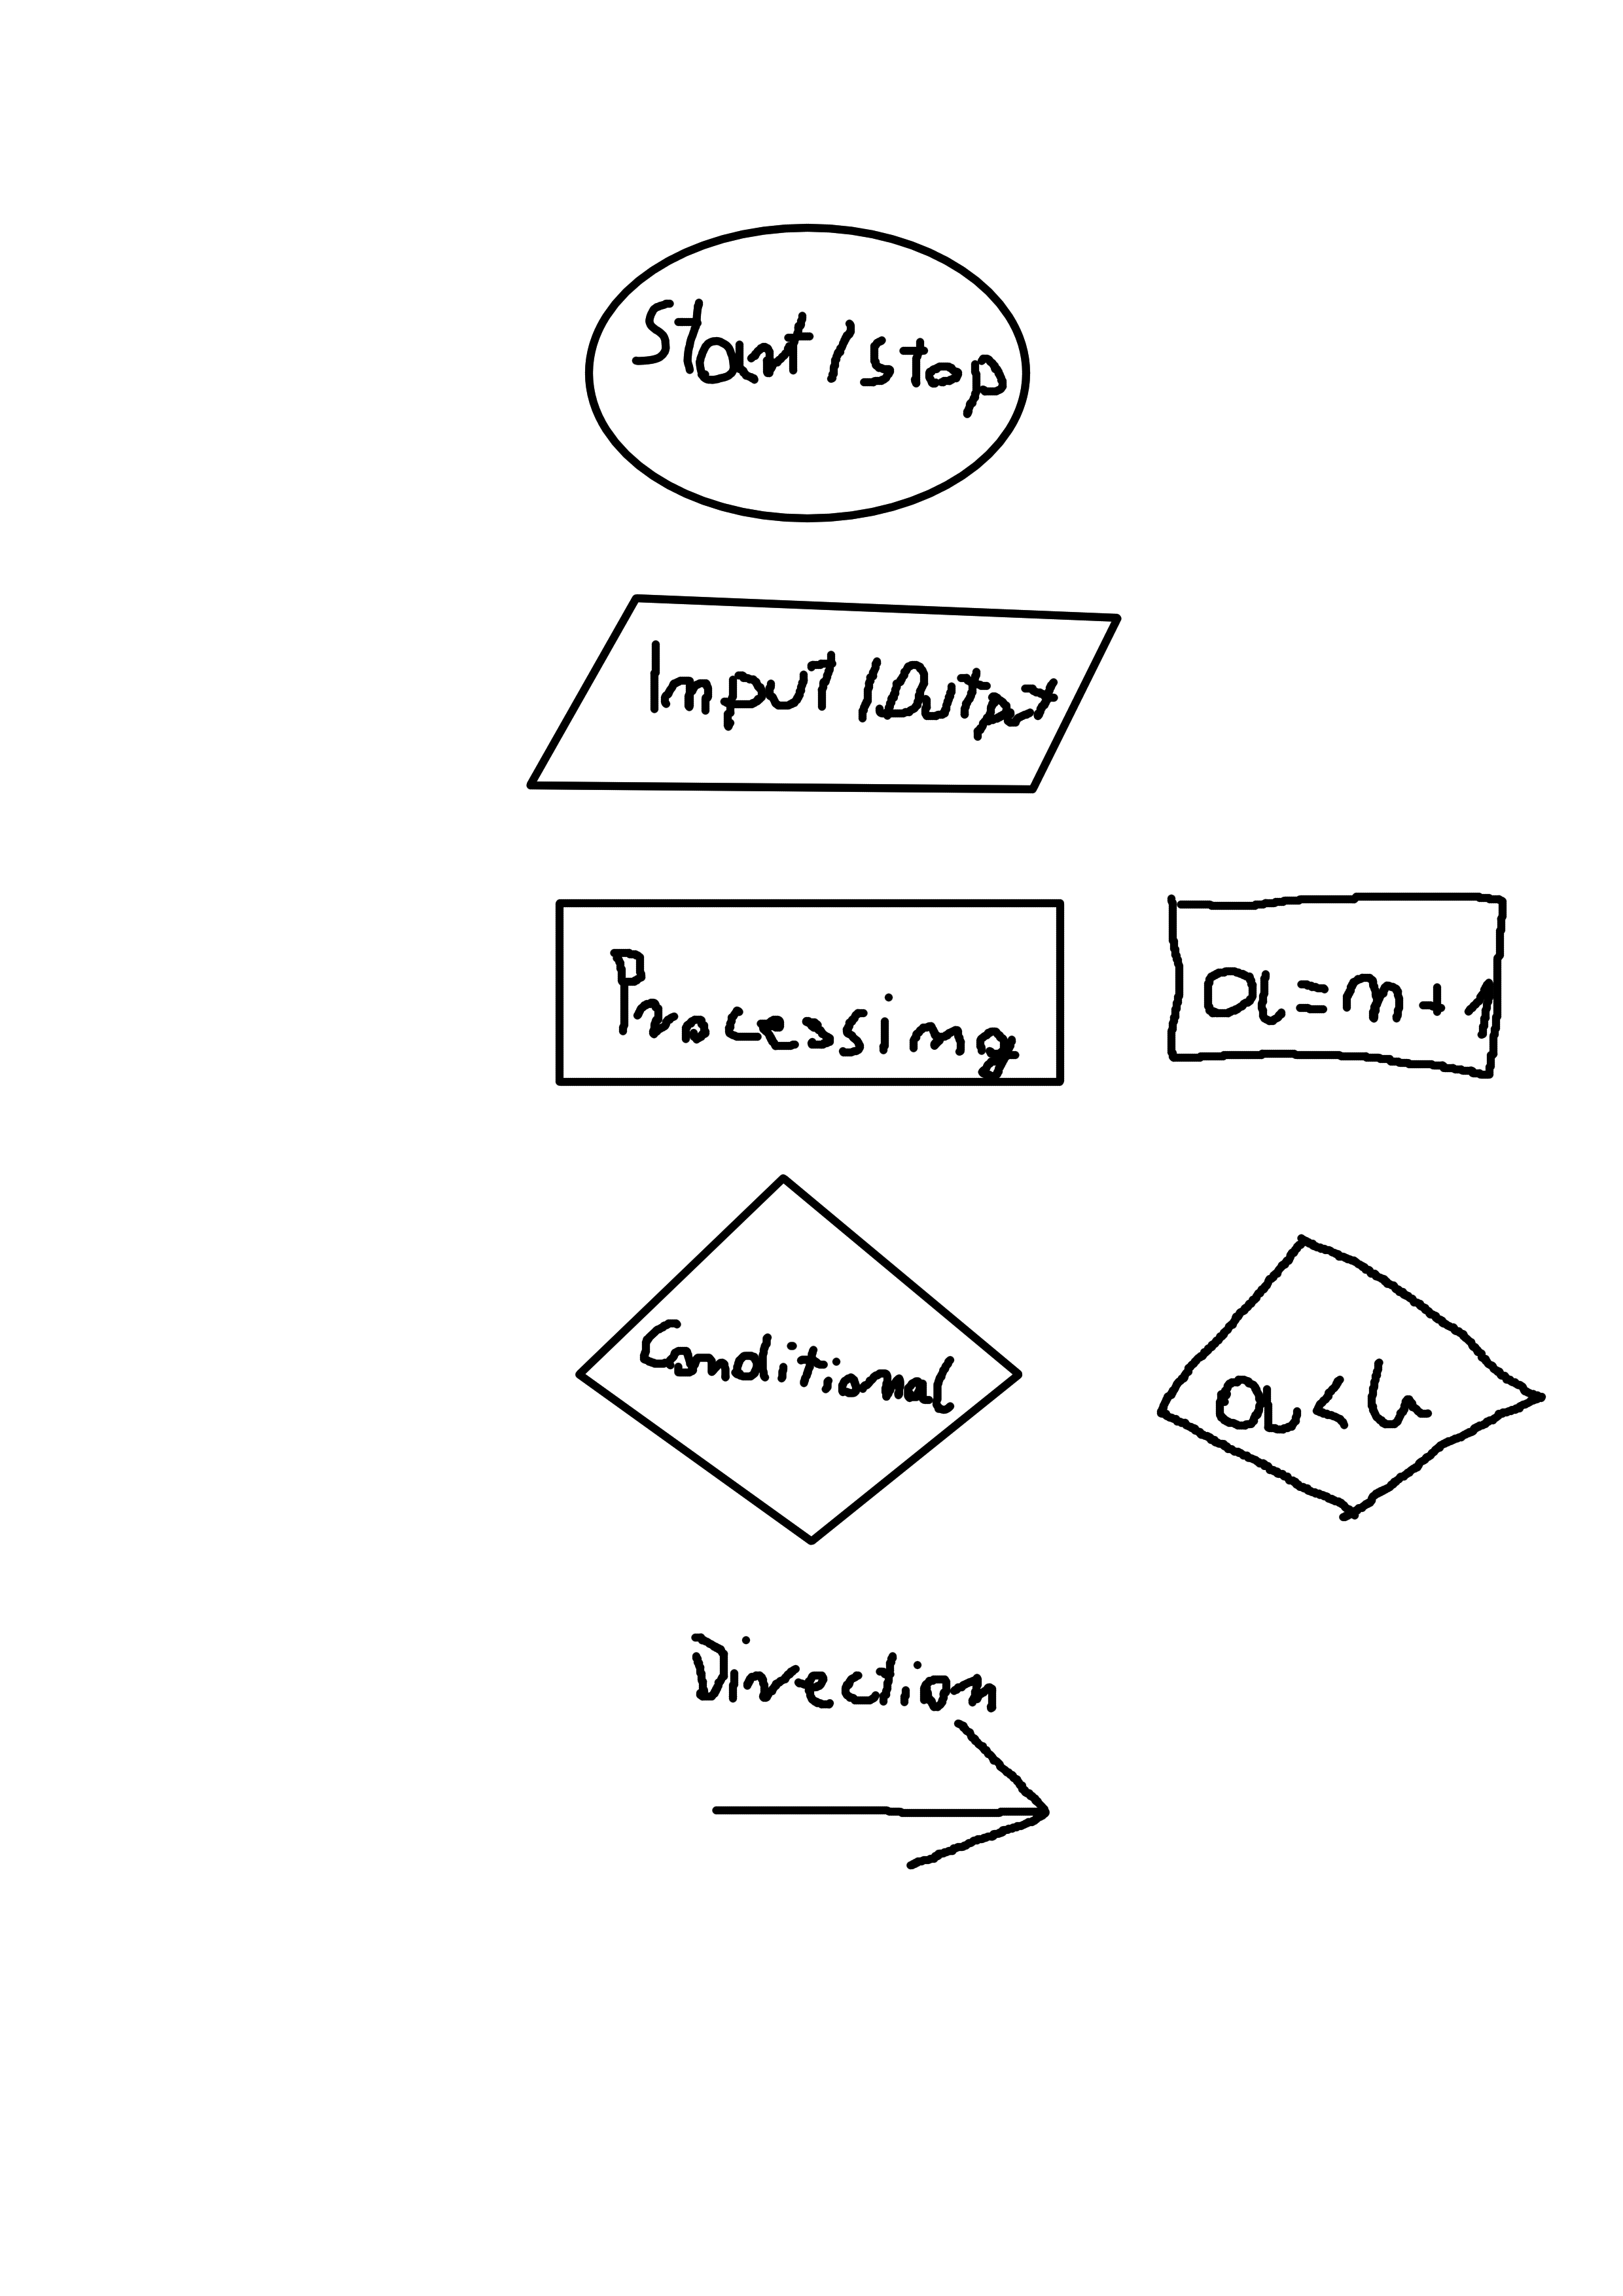 Start / stop
Input / Output
Processing
a = n + 1
Conditional
a < b
Direction